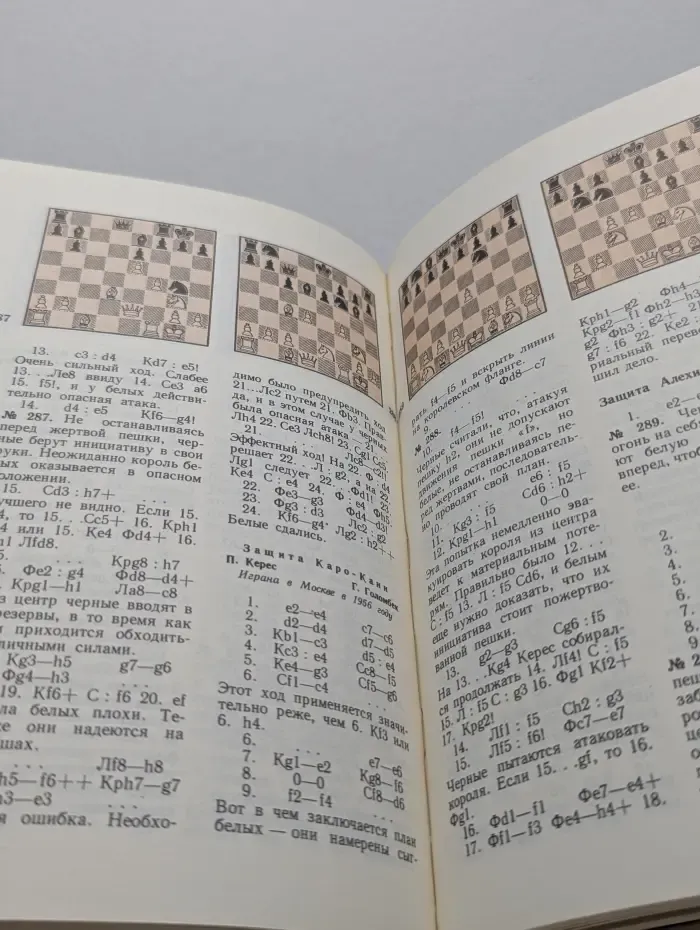 37
13. c3 : d4 Kd7 : e5!
Очень сильный ход. Слабее
13. . .Ле8 ввиду 14. Се3 а6
15. f5!, и у белых действи-
тельно опасная атака.
14. d4 : e5 Kf6—g4!
№ 287. Не останавливаясь
перед жертвой пешки, чер-
ные берут инициативу в свои
руки. Неожиданно король бе-
лых оказывается в опасном
положении.
15. Cd3 : h7+ . . .
лучшего не видно. Если 15.
то 15. . .Cc5+ 16. Kph1
или 15. Ke4 Фd4+ 16.
Лfd8.
. . . Kpg8 : h7
Фe2 : g4 Фd8—d4+
Kpg1—h1 Ла8—c8
центр черные вводят в
резервы, в то время как
приходится обходить-
личными силами.
Kg3—h5 g7—g6
Фg4—h3 . . .
19. Kf6+ C : f6 20. ef
белых плохи. Те-
они надеются на
. . . Лf8—h8
h5—f6++ Kph7—g7
h3—e3 . . .
ошибка. Необхо-
димо было предупредить ход
21...Лс2 путем 21. Фb3. Прав-
да, и в этом случае у черных
была опасная атака — 21. . .
Лh4 22. Се3 Лch8! 23. Cg1 Cc5
21. . . . Лc8—c2!!
Эффектный ход! На 22. Ф : c2
решает 22. . .Л : g2, а на 22.
Лg1 следует 22. . .Фd1! 23.
Ke4 C : e4 24. Ф : e4 Фh5
22. Фe3—g3 Фd4—d3!
23. Фg3 : d3 Лc2 : g2
24. Kf6—g4 Лg2 : h2++
Белые сдались.
Защита Каро-Канн
П. Керес Г. Голомбек
Играна в Москве в 1956 году
1. e2—e4 c7—c6
2. d2—d4 d7—d5
3. Kb1—c3 d5 : e4
4. Kc3 : e4 Cc8—f5
5. Ke4—g3 Cf5—g6
6. Cf1—c4 . . .
Этот ход применяется значи-
тельно реже, чем 6. Kf3 или
6. h4.
6. . . . e7—e6
7. Kg1—e2 Kg8—f6
8. 0—0 Cf8—d6
9. f2—f4 . . .
Вот в чем заключается план
белых — они намерены сыг-
рать f4—f5 и вскрыть линии
на королевском фланге.
9. . . . Фd8—c7
№ 288.
10. f4—f5! . . .
Черные считали, что, атакуя
пешку h2, они не допускают
продвижения пешки «f», но
белые, не останавливаясь пе-
ред жертвами, последователь-
но проводят свой план.
10. . . . e6 : f5
11. Kg3 : f5 Cd6 : h2+
12. Kpg1—h1 0—0
Эта попытка немедленно эва-
куировать короля из центра
ведет к материальным поте-
рям. Правильно было 12. . .
C : f5 13. Л : f5 Cd6, и белым
еще нужно доказать, что их
инициатива стоит пожертво-
ванной пешки.
13. g2—g3 Cg6 : f5
На 13. . .Kg4 Керес собирал-
ся продолжать 14. Лf4! C : f5
15. Л : f5 C : g3 16. Фg1 Kf2+
17. Kpg2!
14. Лf1 : f5 Ch2 : g3
15. Лf5 : f6! Фc7—e7
Черные пытаются атаковать
короля. Если 15. . .gf, то 16.
Фg1.
16. Фd1—f1 Фe7—e4+
17. Фf1—f3 Фe4—h4+ 18.
Kph1—g2 Фh4—
Kpg2—f1 Фh2—h3
g2 Фh3 : g2+ 21
g7 : f6 22. Ke2 :
риальный перев
шил дело.
Защита Алехи
1. e2—e
№ 289. Че
огонь на себя
ют белую
вперед, чтоб
ее.
2.
3.
4.
5.
6.
7.
8.
9
№ 2
пеш
заб